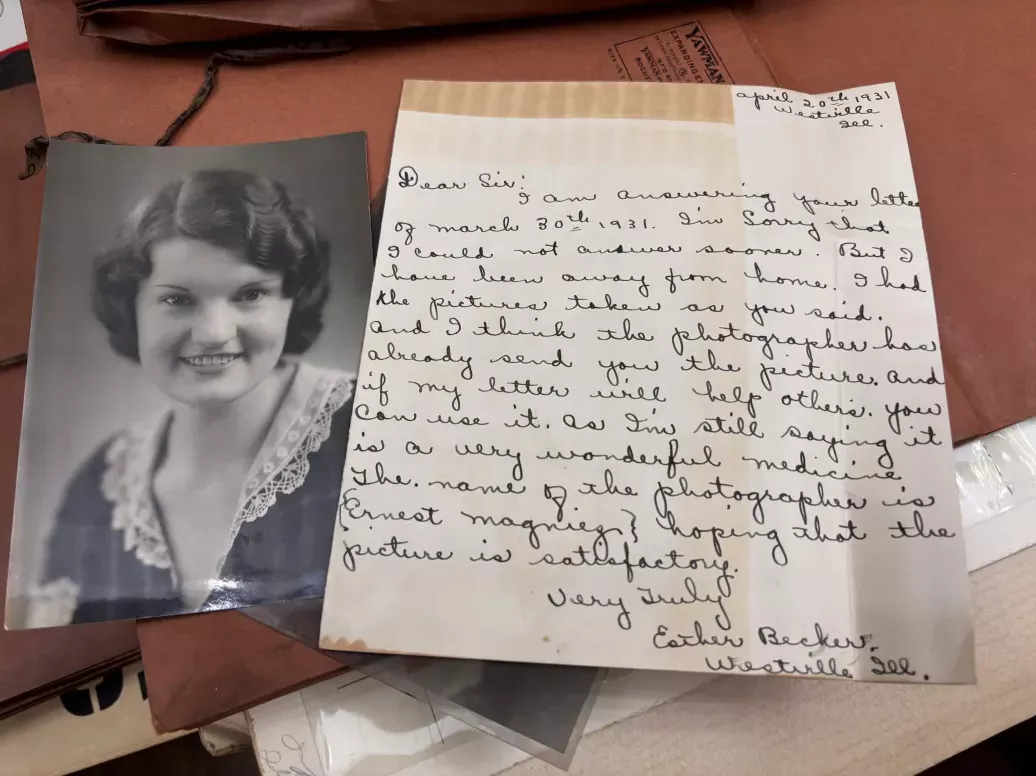 YAWMAN
EXPANDING
YAWMAN
ROCHE
april 20th 1931
Westville
Ill.
Dear Sir:
I am answering your letter
of march 30th 1931. I'm Sorry that
I could not answer sooner. But I
have been away from home. I had
the pictures taken as you said.
and I think the photographer has
already send you the picture. and
if my letter will help others. you
can use it. as I'm still saying it
is a very wonderful medicine
The. name of the photographer is
Ernest magniez } hoping that the
picture is satisfactory.
Very Truly
Esther Becker.
Westville Ill.